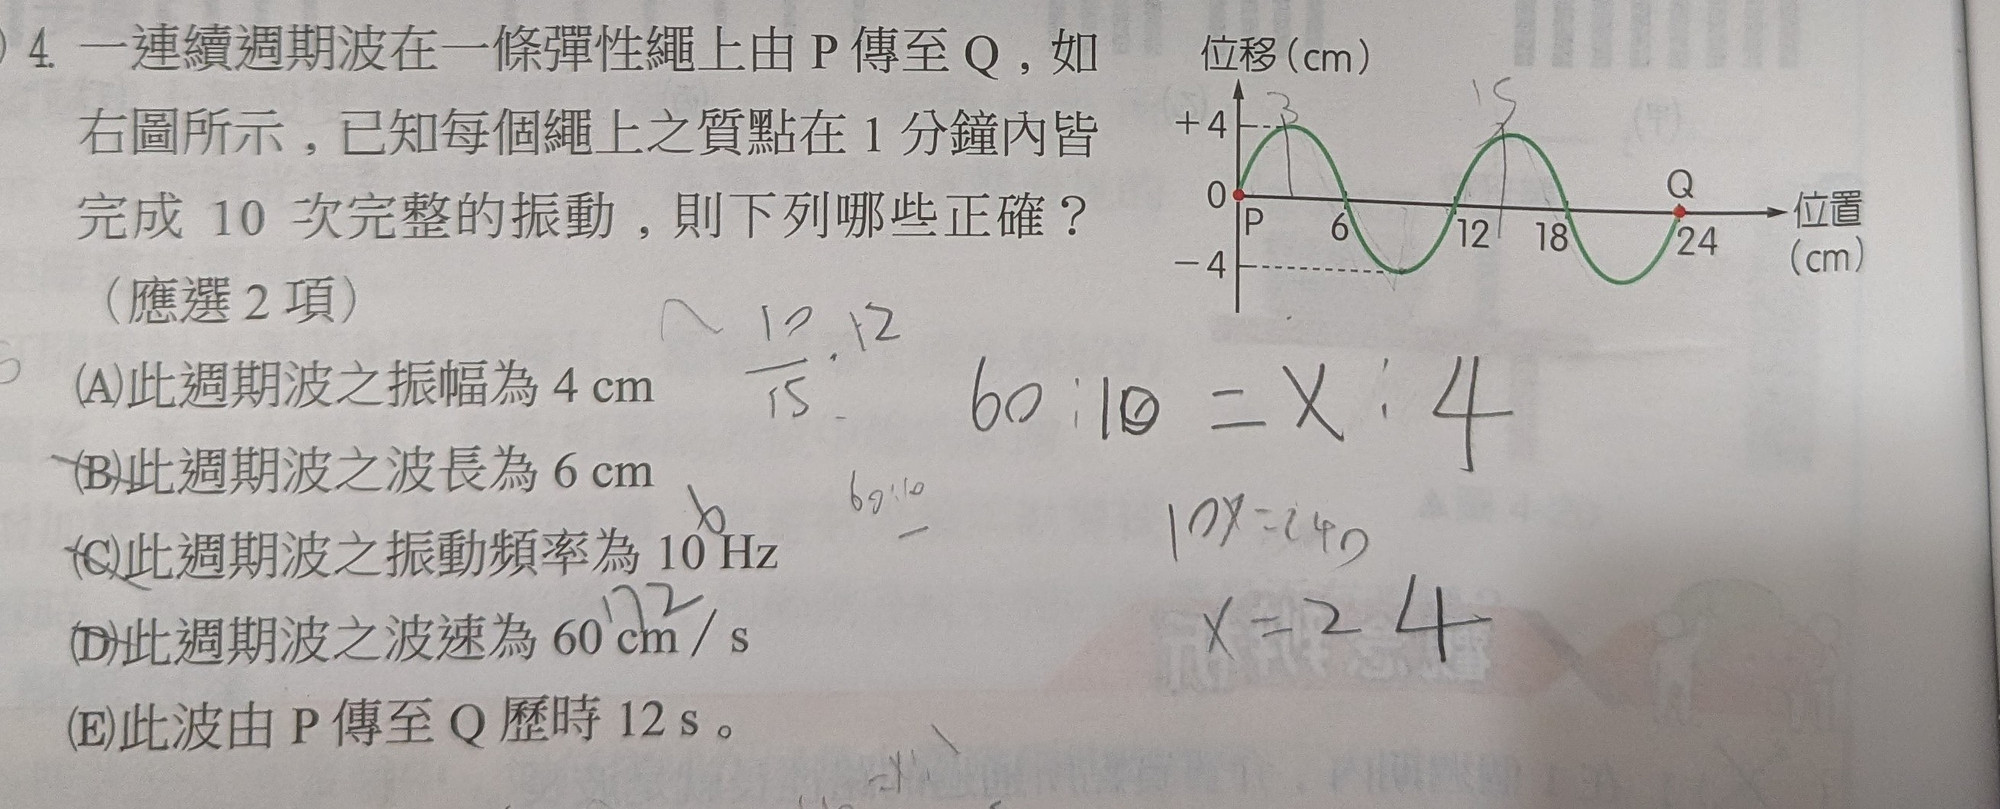 4. 一連續週期波在一條彈性繩上由 P 傳至 Q，如
右圖所示，已知每個繩上之質點在 1 分鐘內皆
完成 10 次完整的振動，則下列哪些正確？
（應選 2 項）
(A)此週期波之振幅為 4 cm
(B)此週期波之波長為 6 cm
(C)此週期波之振動頻率為 10 Hz
(D)此週期波之波速為 60 cm / s
(E)此波由 P 傳至 Q 歷時 12 s。
位移(cm)
3
15
+4
0
-4
P
6
12
18
Q
24
位置
(cm)
10
15
.12
60:10 = X : 4
60:10
10X=240
X=24
6
172